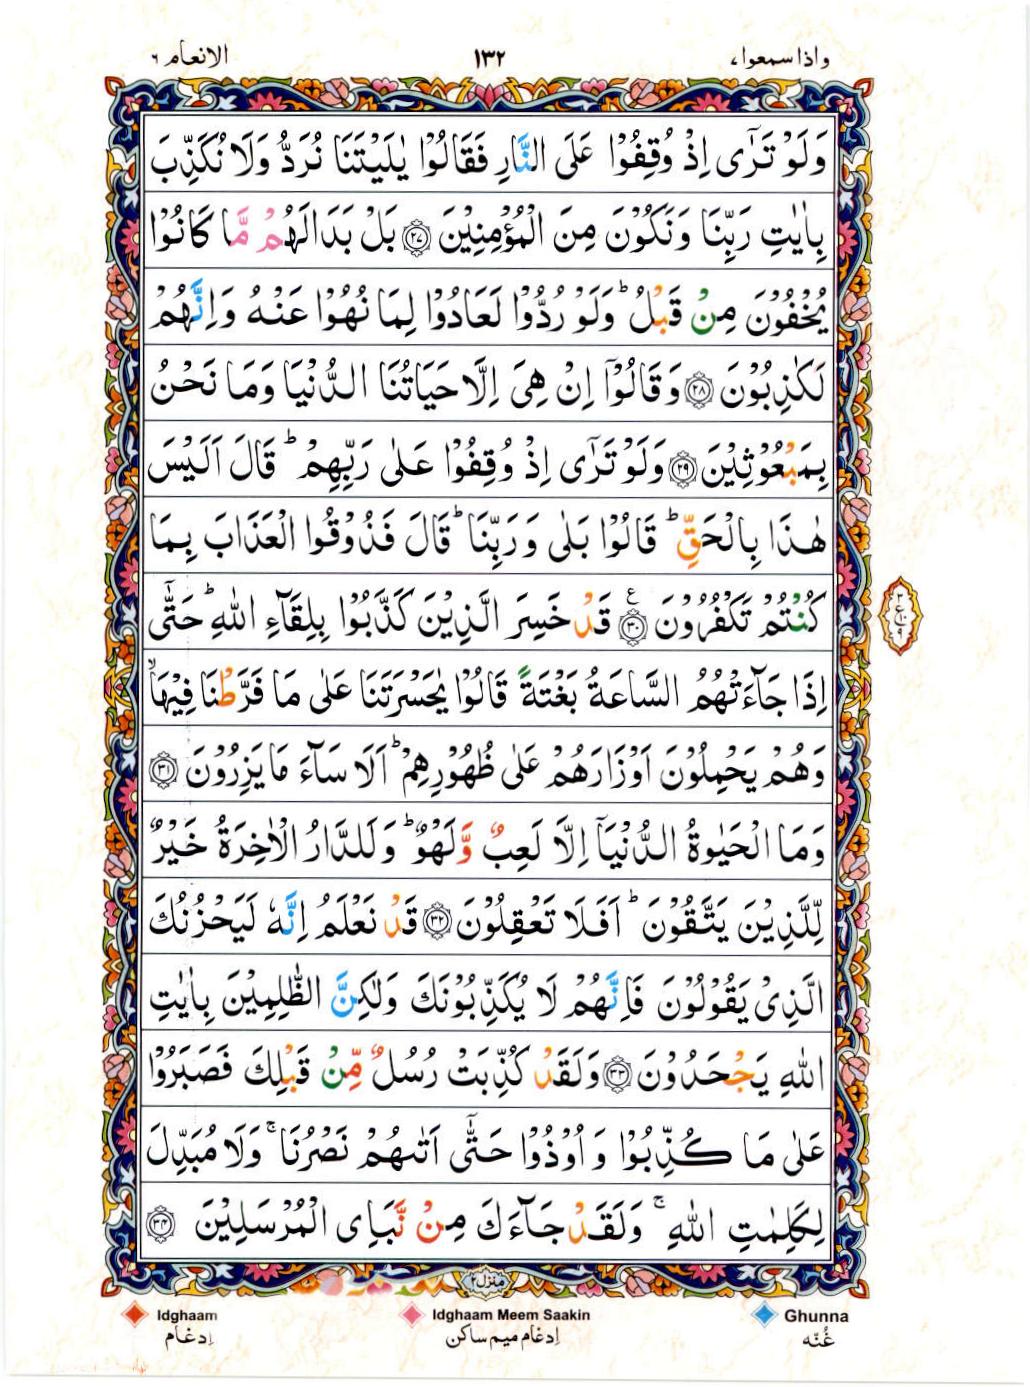 واذا سمعوا ٧ ١٣٢ الانعام ٦
وَلَوْ تَرٰۤى اِذْ وُقِفُوْا عَلَى النَّارِ فَقَالُوْا يٰلَيْتَنَا نُرَدُّ وَلَا نُكَذِّبَ
بِاٰيٰتِ رَبِّنَا وَنَكُوْنَ مِنَ الْمُؤْمِنِيْنَ ﴿٢٧﴾ بَلْ بَدَا لَهُمْ مَّا كَانُوْا
يُخْفُوْنَ مِنْ قَبْلُ ؕ وَلَوْ رُدُّوْا لَعَادُوْا لِمَا نُهُوْا عَنْهُ وَاِنَّهُمْ
لَكٰذِبُوْنَ ﴿٢٨﴾ وَقَالُوْۤا اِنْ هِىَ اِلَّا حَيَاتُنَا الدُّنْيَا وَمَا نَحْنُ
بِمَبْعُوْثِيْنَ ﴿٢٩﴾ وَلَوْ تَرٰۤى اِذْ وُقِفُوْا عَلٰى رَبِّهِمْ ؕ قَالَ اَلَيْسَ
هٰذَا بِالْحَقِّ ؕ قَالُوْا بَلٰى وَرَبِّنَا ؕ قَالَ فَذُوْقُوا الْعَذَابَ بِمَا
كُنْتُمْ تَكْفُرُوْنَ ﴿٣٠﴾ ع قَدْ خَسِرَ الَّذِيْنَ كَذَّبُوْا بِلِقَآءِ اللّٰهِ ؕ حَتّٰۤى
اِذَا جَآءَتْهُمُ السَّاعَةُ بَغْتَةً قَالُوْا يٰحَسْرَتَنَا عَلٰى مَا فَرَّطْنَا فِيْهَا ۙ
وَهُمْ يَحْمِلُوْنَ اَوْزَارَهُمْ عَلٰى ظُهُوْرِهِمْ ؕ اَلَا سَآءَ مَا يَزِرُوْنَ ﴿٣١﴾
وَمَا الْحَيٰوةُ الدُّنْيَاۤ اِلَّا لَعِبٌ وَّلَهْوٌ ؕ وَلَلدَّارُ الْاٰخِرَةُ خَيْرٌ
لِّلَّذِيْنَ يَتَّقُوْنَ ؕ اَفَلَا تَعْقِلُوْنَ ﴿٣٢﴾ قَدْ نَعْلَمُ اِنَّهٗ لَيَحْزُنُكَ
الَّذِىْ يَقُوْلُوْنَ فَاِنَّهُمْ لَا يُكَذِّبُوْنَكَ وَلٰكِنَّ الظّٰلِمِيْنَ بِاٰيٰتِ
اللّٰهِ يَجْحَدُوْنَ ﴿٣٣﴾ وَلَقَدْ كُذِّبَتْ رُسُلٌ مِّنْ قَبْلِكَ فَصَبَرُوْا
عَلٰى مَا كُذِّبُوْا وَاُوْذُوْا حَتّٰۤى اَتٰىهُمْ نَصْرُنَا ۚ وَلَا مُبَدِّلَ
لِكَلِمٰتِ اللّٰهِ ۚ وَلَقَدْ جَآءَكَ مِنْ نَّبَاِى الْمُرْسَلِيْنَ ﴿٣٤﴾
منزل ٢
Idghaam Idghaam Meem Saakin Ghunna
اِدغام اِدغام ميم ساكن غُنّه